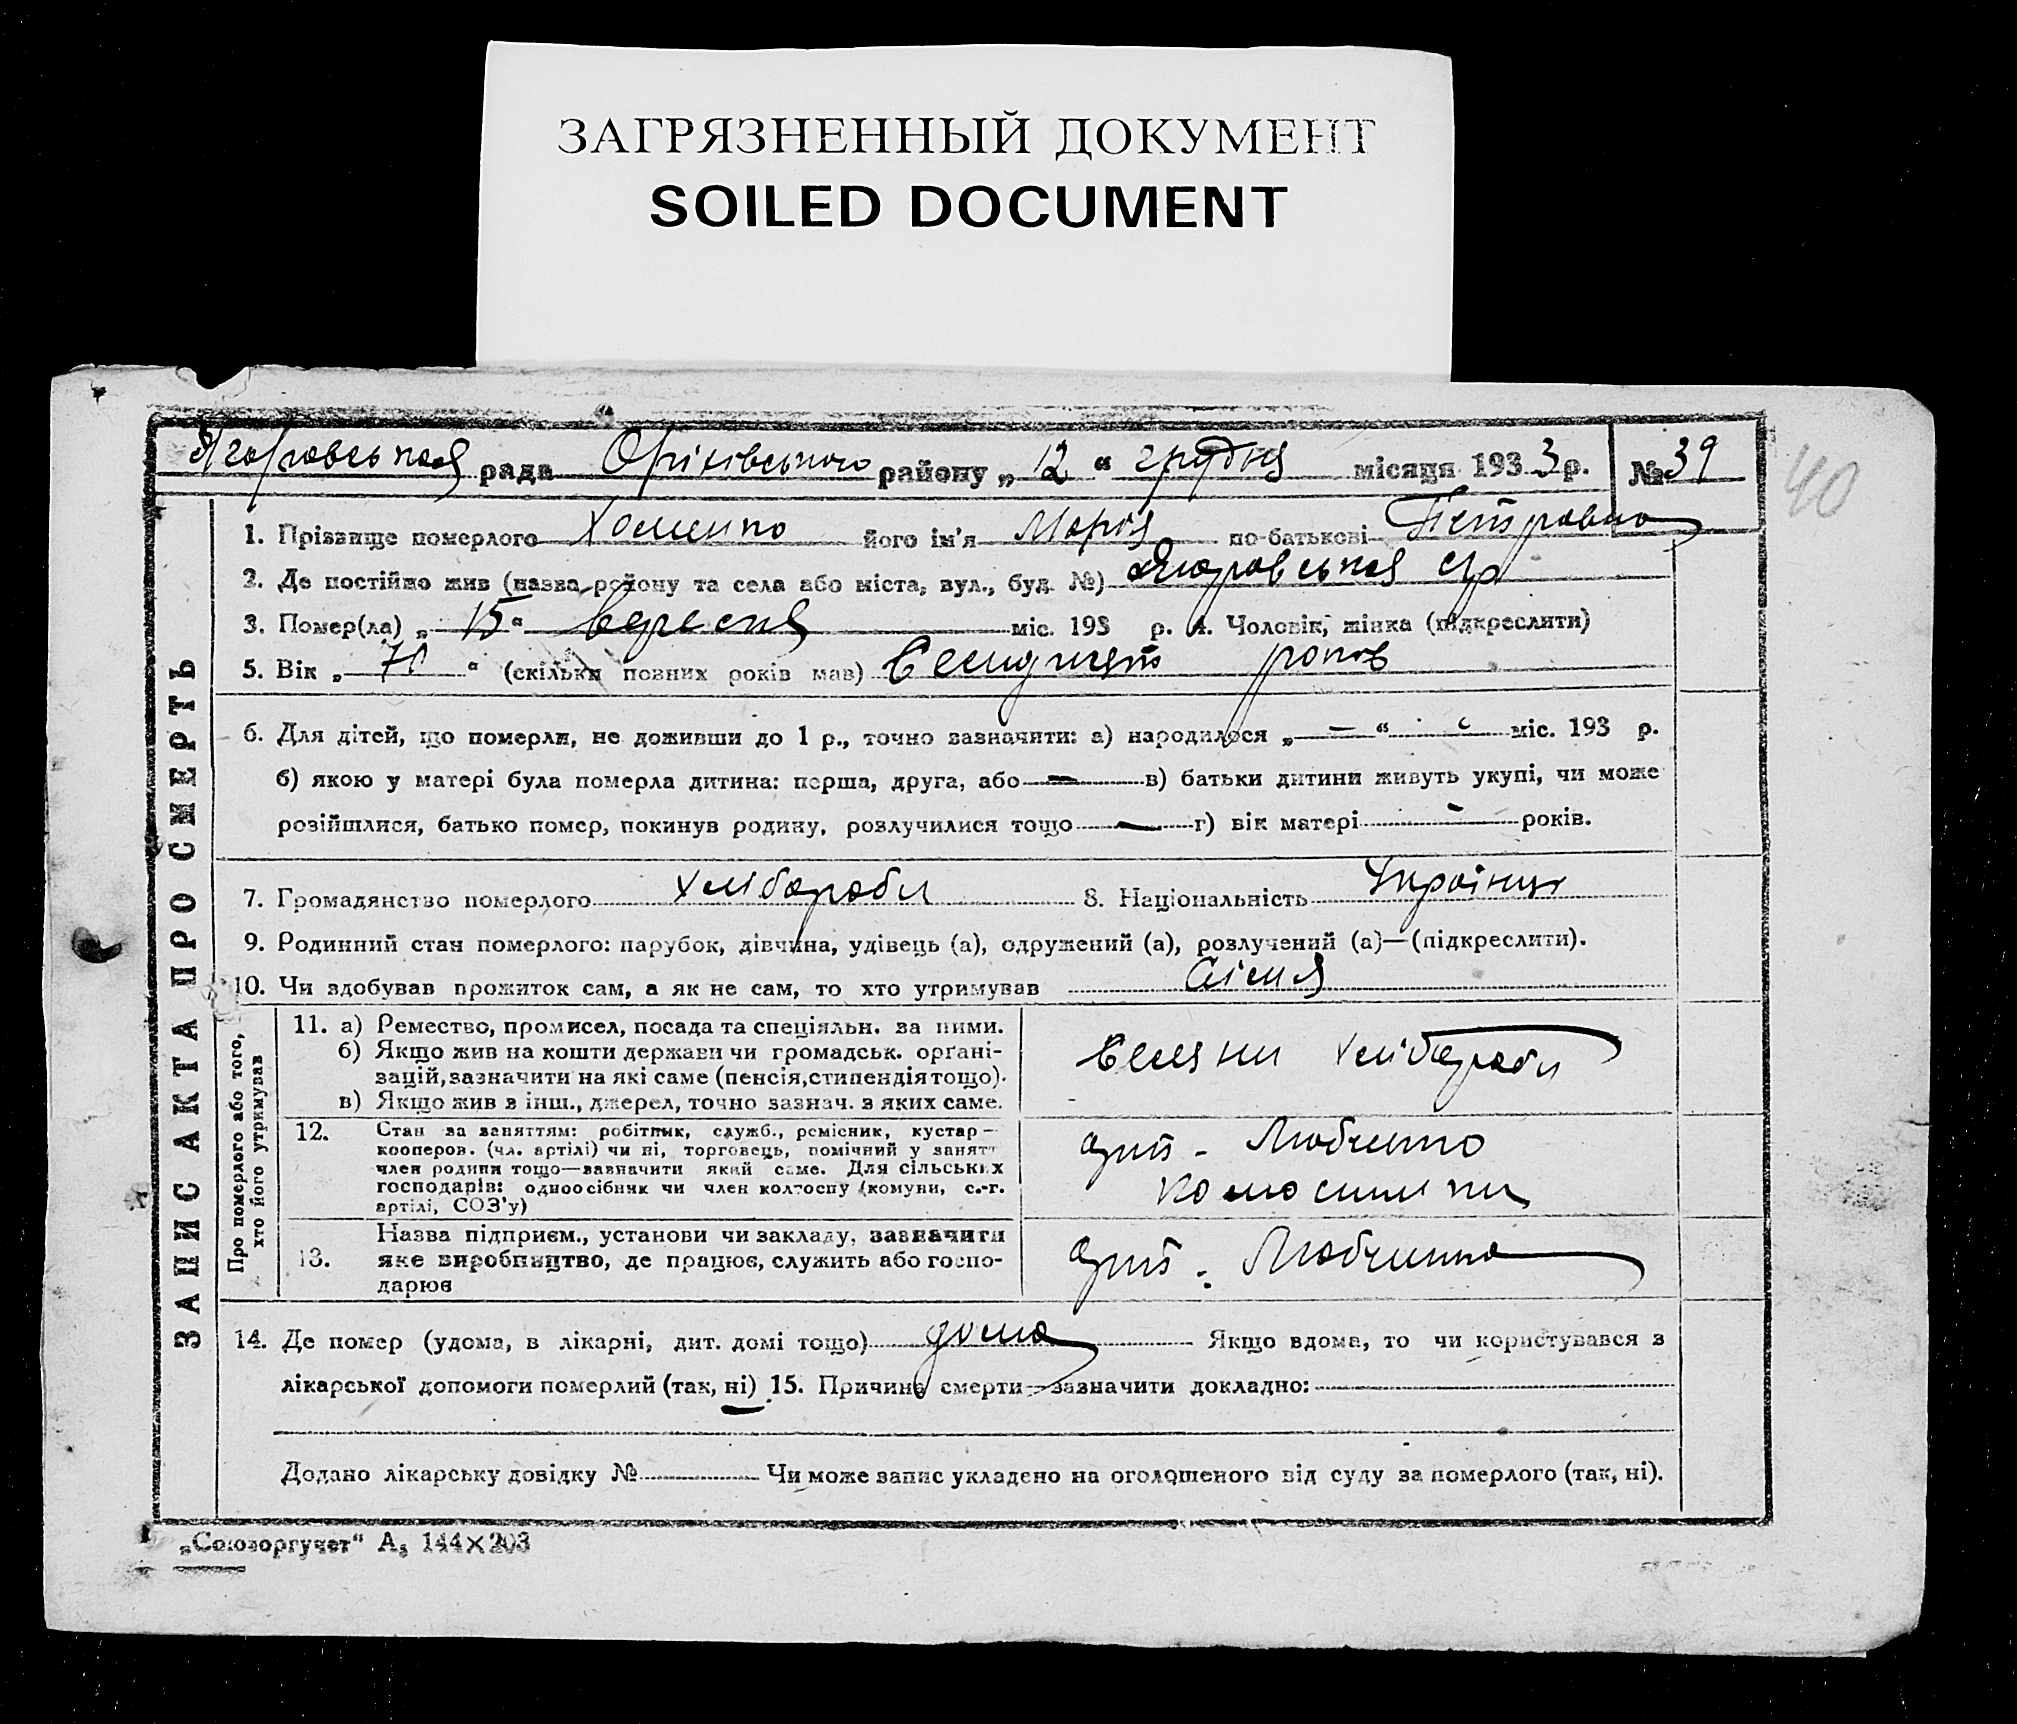 ЗАГРЯЗНЕННЫЙ ДОКУМЕНТ
SOILED DOCUMENT
рада Оріхівського району „ 12 “ грудня місяця 1933 р. № 39
40
ЗАПИС АКТА ПРО СМЕРТЬ
1. Прізвище померлого Хоменко його ім'я Марія по-батькові Петровна
2. Де постійно жив (назва району та села або міста, вул., буд. №)
3. Помер(ла) „ 15 “ вересня міс. 193 р. 4. Чоловік, жінка (підкреслити)
5. Вік „ 70 “ (скільки повних років мав) років
6. Для дітей, що померли, не доживши до 1 р., точно зазначити: а) народилося „ — “ міс. 193 р.
б) якою у матері була померла дитина: перша, друга, або — в) батьки дитини живуть укупі, чи може
розійшлися, батько помер, покинув родину, розлучилися тощо — г) вік матері - років.
7. Громадянство померлого хлібороби 8. Національність Українці
9. Родинний стан померлого: парубок, дівчина, удівець (а), одружений (а), розлучений (а)—(підкреслити).
10. Чи здобував прожиток сам, а як не сам, то хто утримував сімя
Про померлого або того,
хто його утримував
11. а) Ремество, промисел, посада та спеціяльн. за ними.
б) Якщо жив на кошти держави чи громадськ. органі-
зацій, зазначити на які саме (пенсія, стипендія тощо).
в) Якщо жив з інш., джерел, точно зазнач. з яких саме.
Селяни хлібороби
12. Стан за заняттям: робітник, служб., ремісник, кустар—
кооперов. (чл. артілі) чи ні, торговець, помічний у занятт
член родини тощо—зазначити який саме. Для сільських
господарів: одноосібник чи член колгоспу (комуни, с.-г.
артілі, СОЗ'у)
13. Назва підприєм., установи чи закладу, зазначити
яке виробництво, де працює, служить або госпо-
дарює
14. Де помер (удома, в лікарні, дит. домі тощо) дома Якщо вдома, то чи користувався з
лікарської допомоги померлий (так, ні) 15. Причина смерти—зазначити докладно:
Додано лікарську довідку № Чи може запис укладено на оголошеного від суду за померлого (так, ні).
„Союзоргучет“ А₅ 144×203